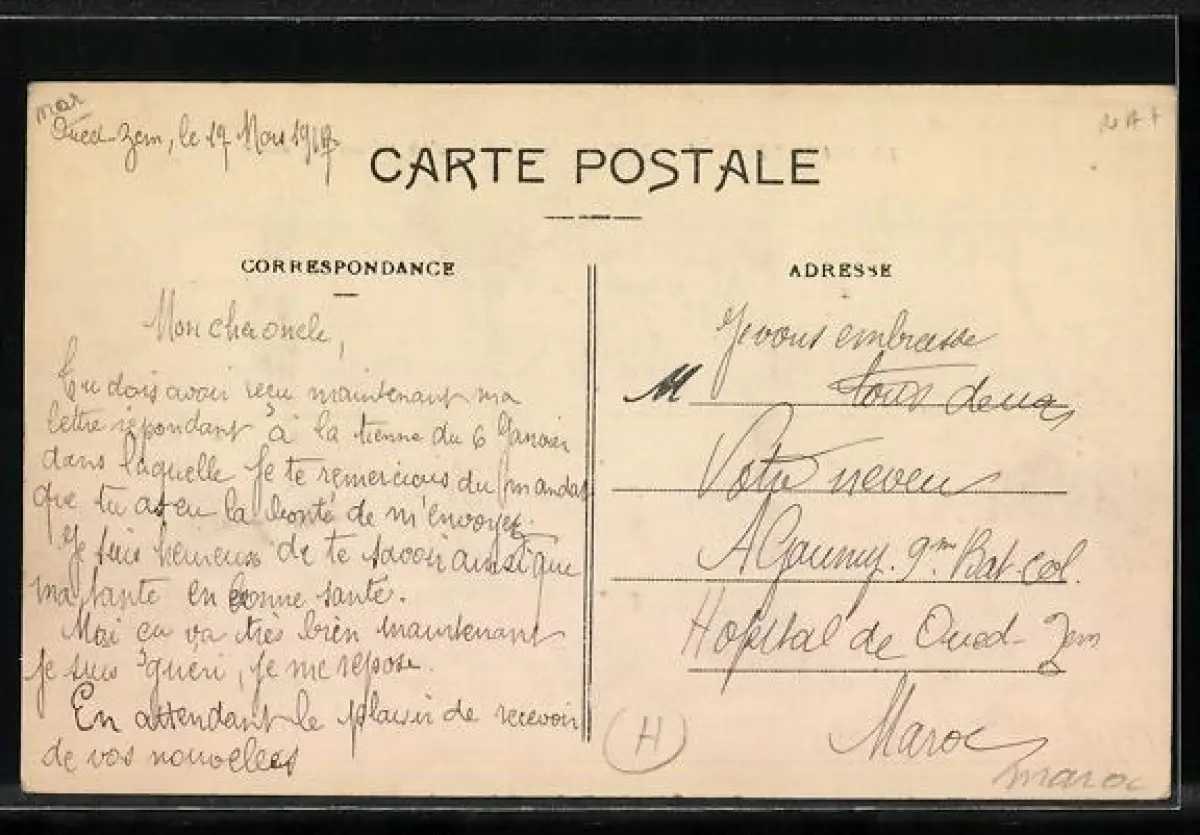 mar
Oued-Zem, le 17 Mars 1917
CARTE POSTALE
CORRESPONDANCE
Mon cher oncle,
Tu dois avoir reçu maintenant ma
lettre répondant à la tienne du 6 Janvier
dans laquelle Je te remerciais du mandat
que tu as eu la bonté de m'envoyer.
Je suis heureux de te savoir ainsi que
ma tante en bonne santé.
Moi ça va très bien maintenant
je suis guéri, je me repose.
En attendant le plaisir de recevoir
de vos nouvelles
ADRESSE
Je vous embrasse
M tous deux
Votre neveu
A 9me Bat. Col.
Hopital de Oued-Zem
Maroc
(H)
maroc